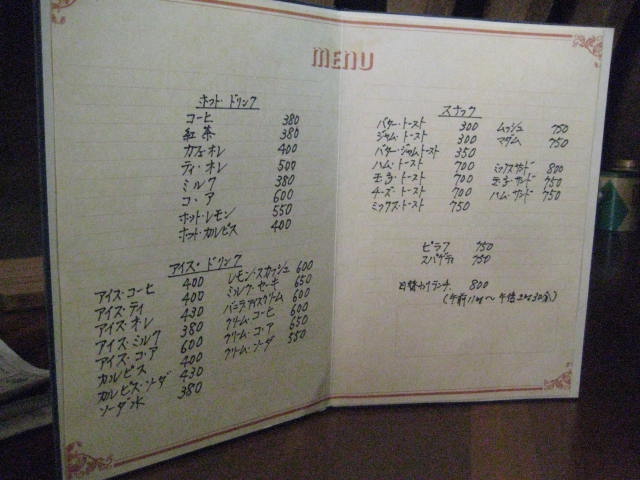 MENU
ホット・ドリンク
コーヒ 380
紅茶 380
カフェ・オレ 400
ティ・オレ 500
ミルク 380
コ・ア 600
ホット・レモン 550
ホット・カルピス 400
アイス・ドリンク
アイス・コーヒ 400
アイス・ティ 400
アイス・オレ 430
アイス・ミルク 380
アイス・コ・ア 600
カルピス 400
カルピス・ソーダ 430
ソーダ水 380
レモン・スカッシュ 600
ミルク・セーキ 650
バニラ・アイスクリーム 600
クリーム・コーヒ 600
クリーム・コ・ア 650
クリーム・ソーダ 550
スナック
バター・トースト 300
ジャム・トースト 300
バター・ジャムトースト 350
ハム・トースト 700
玉子・トースト 700
チーズ・トースト 700
ミックス・トースト 750
ムッシュ 750
マダム 750
ミックスサンド 800
玉子・サンド 750
ハム・サンド 750
ピラフ 750
スパゲティ 750
日替わりランチ 800
(午前11時〜午后2時30分)